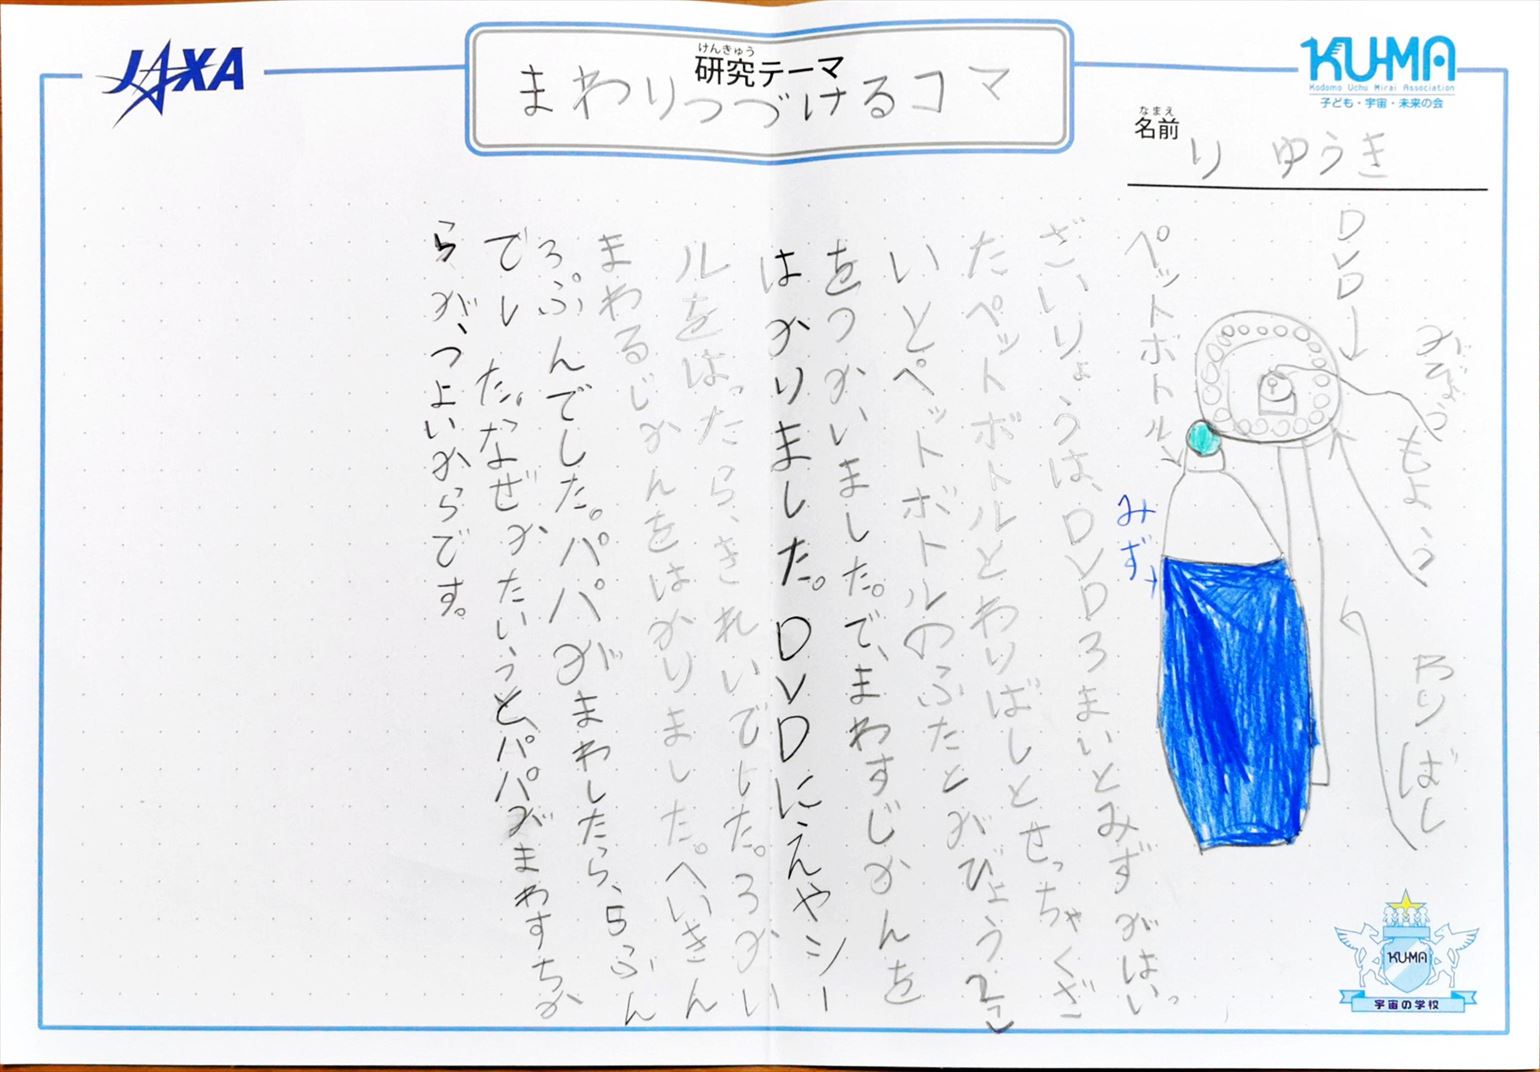 JAXA
けんきゅう
研究テーマ
まわりつづけるコマ
KU-MA
Kodomo Uchu Mirai Association
子ども・宇宙・未来の会
なまえ
名前
り ゆうき
DVD
がびょう
もよう
わりばし
ペットボトル
みず
ざいりょうは、DVD3まいとみずがはいっ
たペットボトルとわりばしとせっちゃくざ
いとペットボトルのふたとがびょう2こ
をつかいました。で、まわすじかんを
はかりました。DVDにえやシー
ルをはったら、きれいでした。3かい
まわるじかんをはかりました。へいきん
3ぷんでした。パパがまわしたら、5ふん
でした。なぜかというと、パパがまわすちか
らが、つよいからです。
KU-MA
宇宙の学校